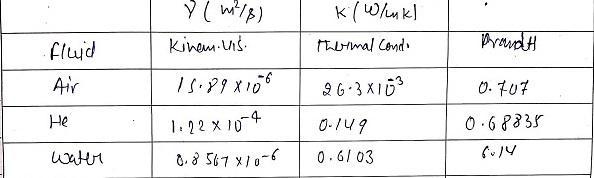 ν (m²/s) K (W/mk)
fluid Kinem. Vis. thermal Cond. Prandtl
Air 15.89 × 10⁻⁶ 26.3 × 10⁻³ 0.707
He 1.22 × 10⁻⁴ 0.149 0.68835
water 0.8567 × 10⁻⁶ 0.6103 6.14